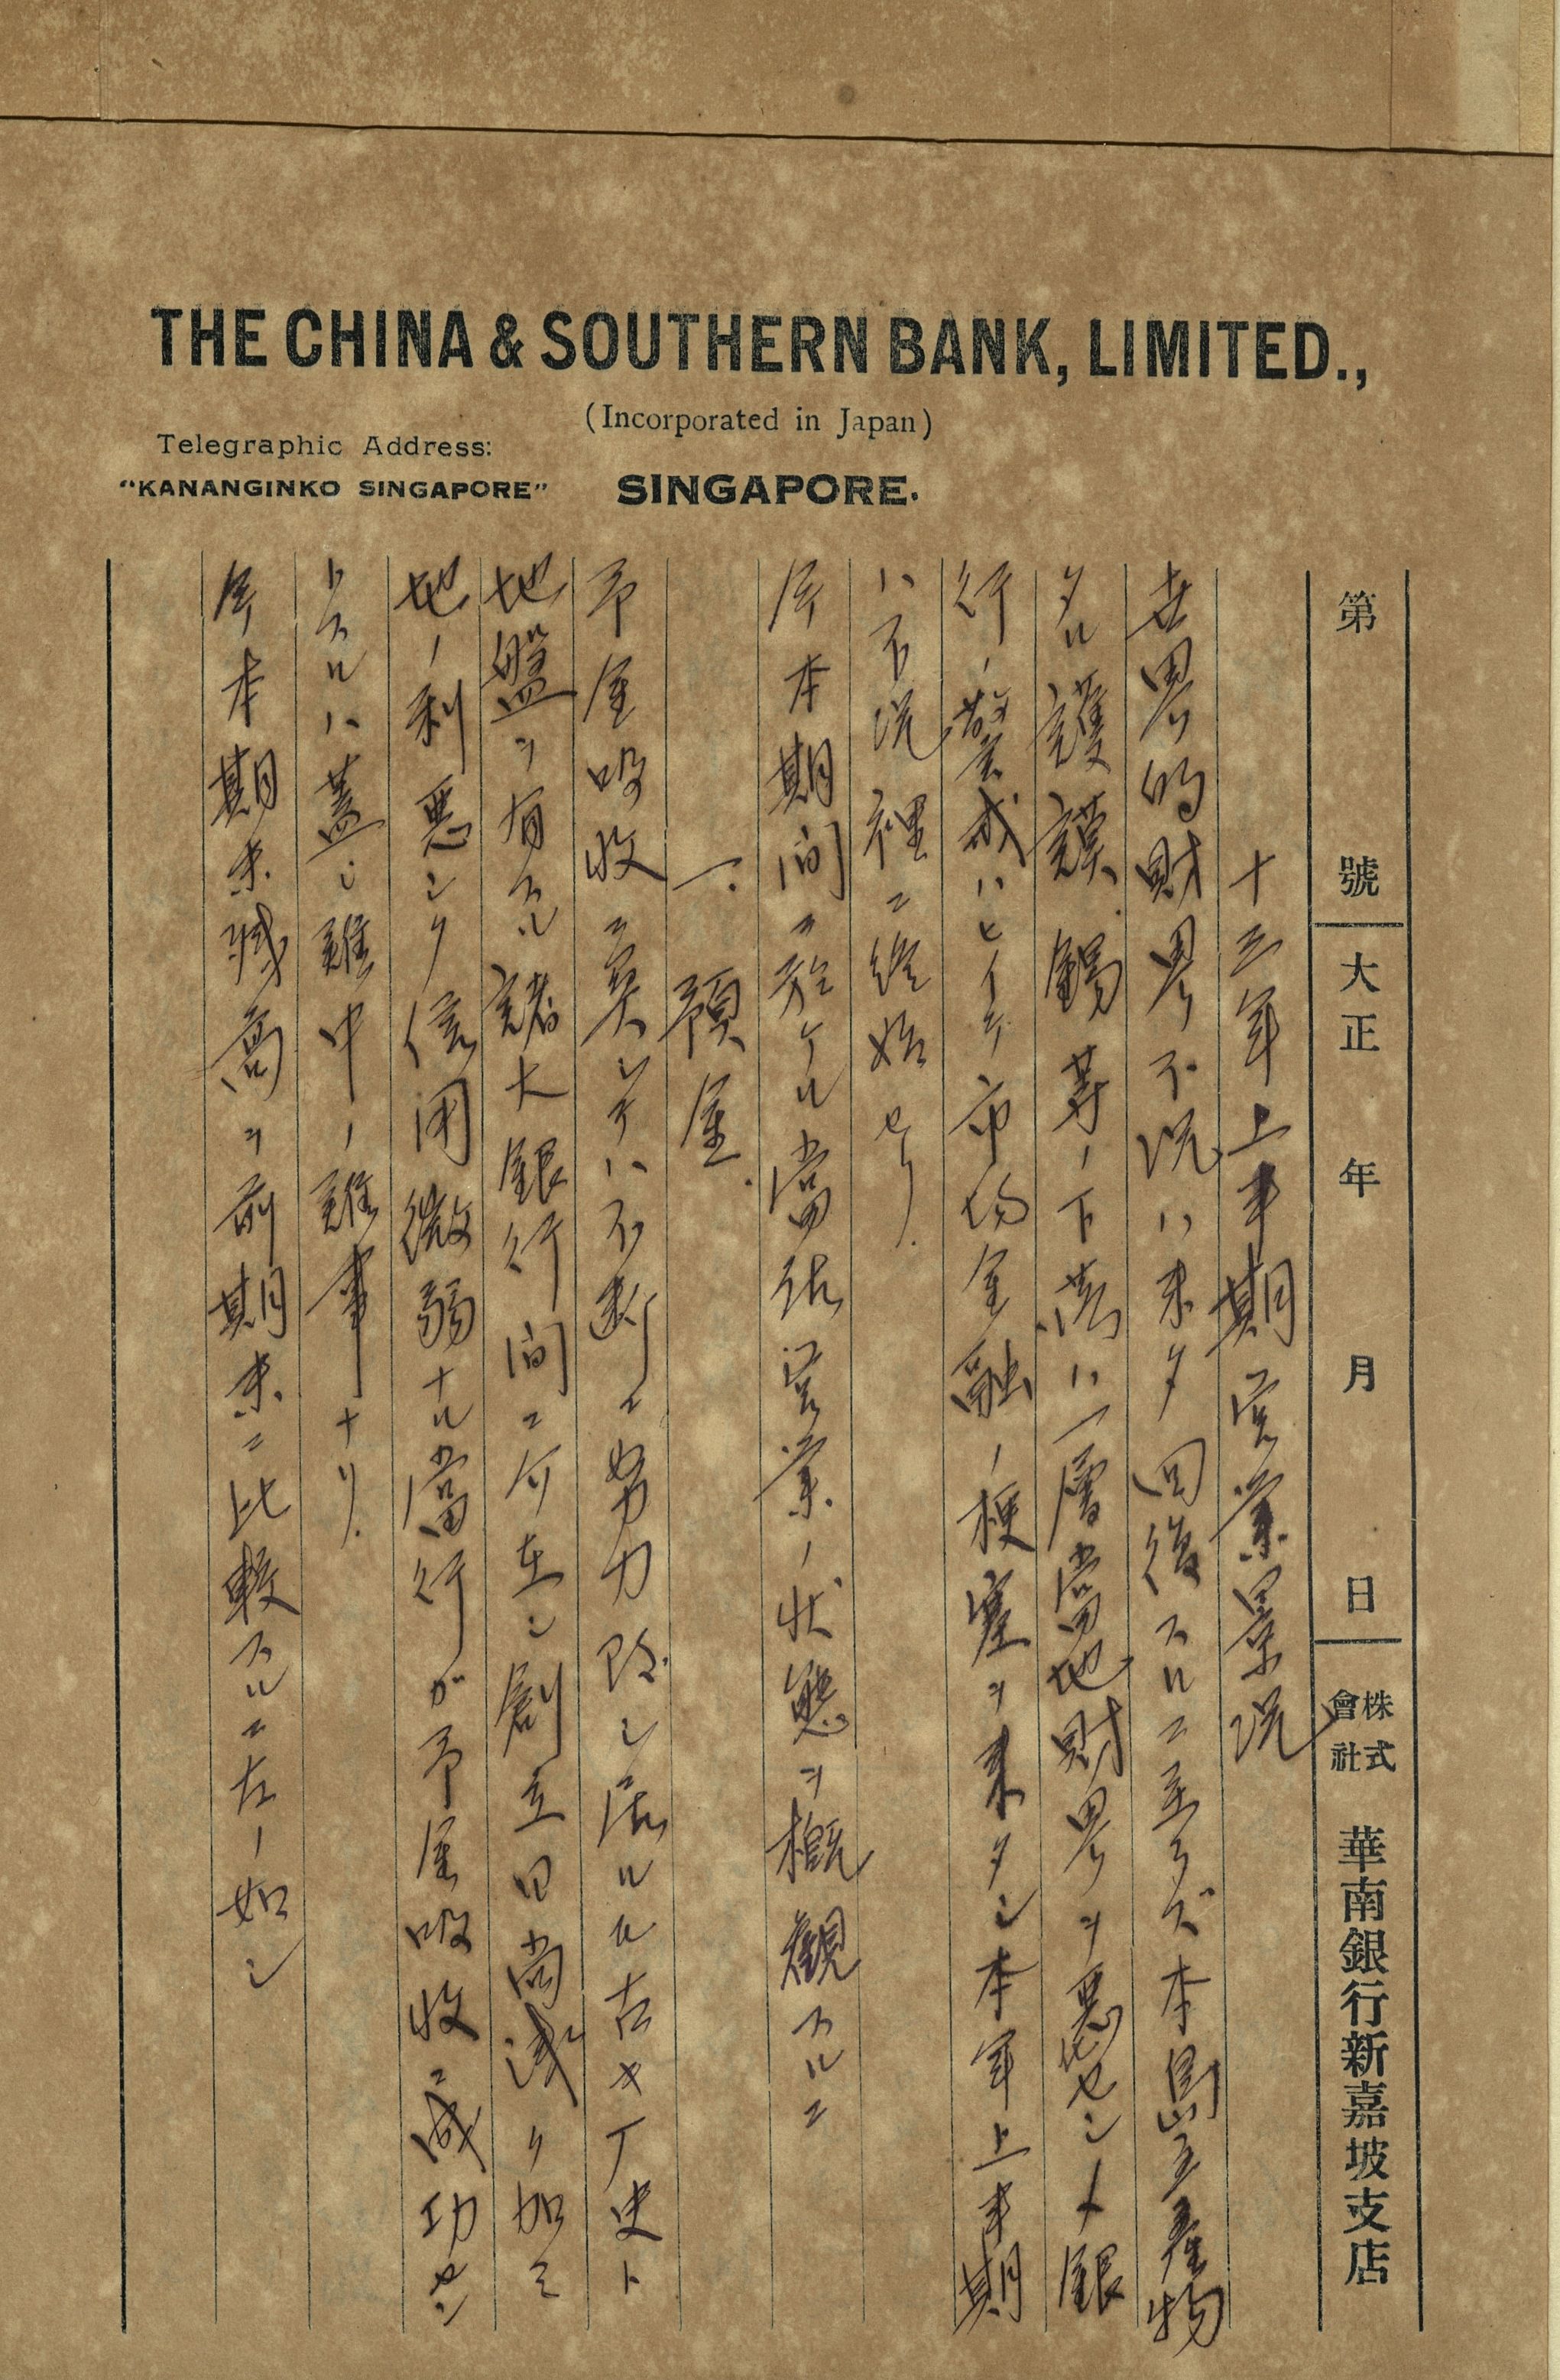 THE CHINA & SOUTHERN BANK, LIMITED.,
(Incorporated in Japan)
Telegraphic Address:
"KANANGINKO SINGAPORE"
SINGAPORE.
第 號 大正 年 月 日 株式會社 華南銀行新嘉坡支店
十三年上半期営業景況
世界的財界不況ハ未タ回復スルニ至ラズ本島主産物
タル護謨錫等ノ下落ハ一層當地財界ヲ悪化セシメ銀
行ノ警戒ハヒイテ市場金融ノ梗塞ヲ来タシ本年上半期
ハ不況裡ニ終始セリ.
今本期間ニ於ケル當店営業ノ状態ヲ概観スルニ
一. 預金.
予金吸收ニ关シテハ不断ニ努力致シ居ルモ古キ丁史ト
地盤ヲ有スル諸大銀行間ニ介在シ創立日尚浅ク加ヱ
地ノ利悪シク信用微弱ナル當行ガ予金吸收ニ成功セン
トスルハ蓋シ難中ノ難事ナリ.
今本期末残高ヲ前期末ニ比較スルニ左ノ如シ